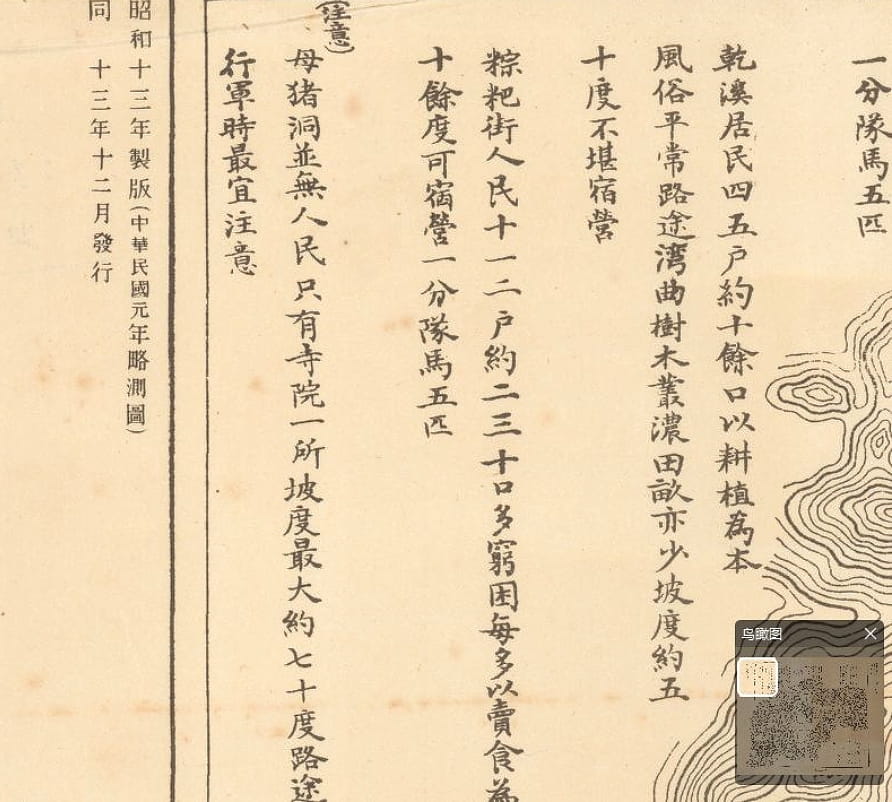 一分隊馬五匹
乾溪居民四五戶約十餘口以耕植為本
風俗平常路途湾曲樹木叢濃田畝亦少坡度約五
十度不堪宿營
粽粑街人民十一二戶約二三十口多窮困每多以賣食為
十餘度可宿營一分隊馬五匹
(注意)
母猪洞並無人民只有寺院一所坡度最大約七十度路途
行軍時最宜注意
昭和十三年製版(中華民國元年略測圖)
同 十三年十二月發行
鸟瞰图